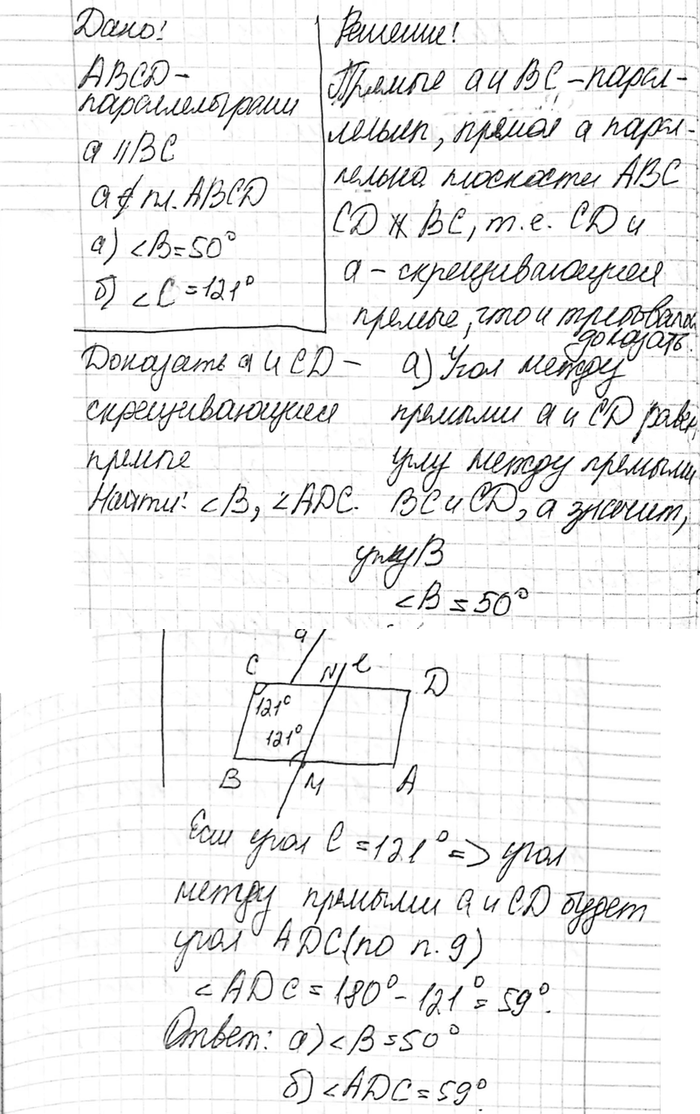 Дано:
ABCD -
параллелограмм
a || BC
a ⊄ пл. ABCD
а) ∠B = 50°
б) ∠C = 121°
Доказать a и CD -
скрещивающиеся
прямые
Найти: ∠B, ∠ADC.
Решение:
Прямые a и BC - парал-
лельны, прямая a парал-
лельна плоскости ABC
CD ∦ BC, т.е. CD и
a - скрещивающиеся
прямые, что и требовалось
доказать.
а) Угол между
прямыми a и CD равен
углу между прямыми
BC и CD, а значит,
углу B
∠B = 50°
a
C N l D
121°
121°
B M A
Если угол C = 121° => угол
между прямыми a и CD будет
угол ADC (по п. 9)
∠ADC = 180° - 121° = 59°.
Ответ: а) ∠B = 50°
б) ∠ADC = 59°